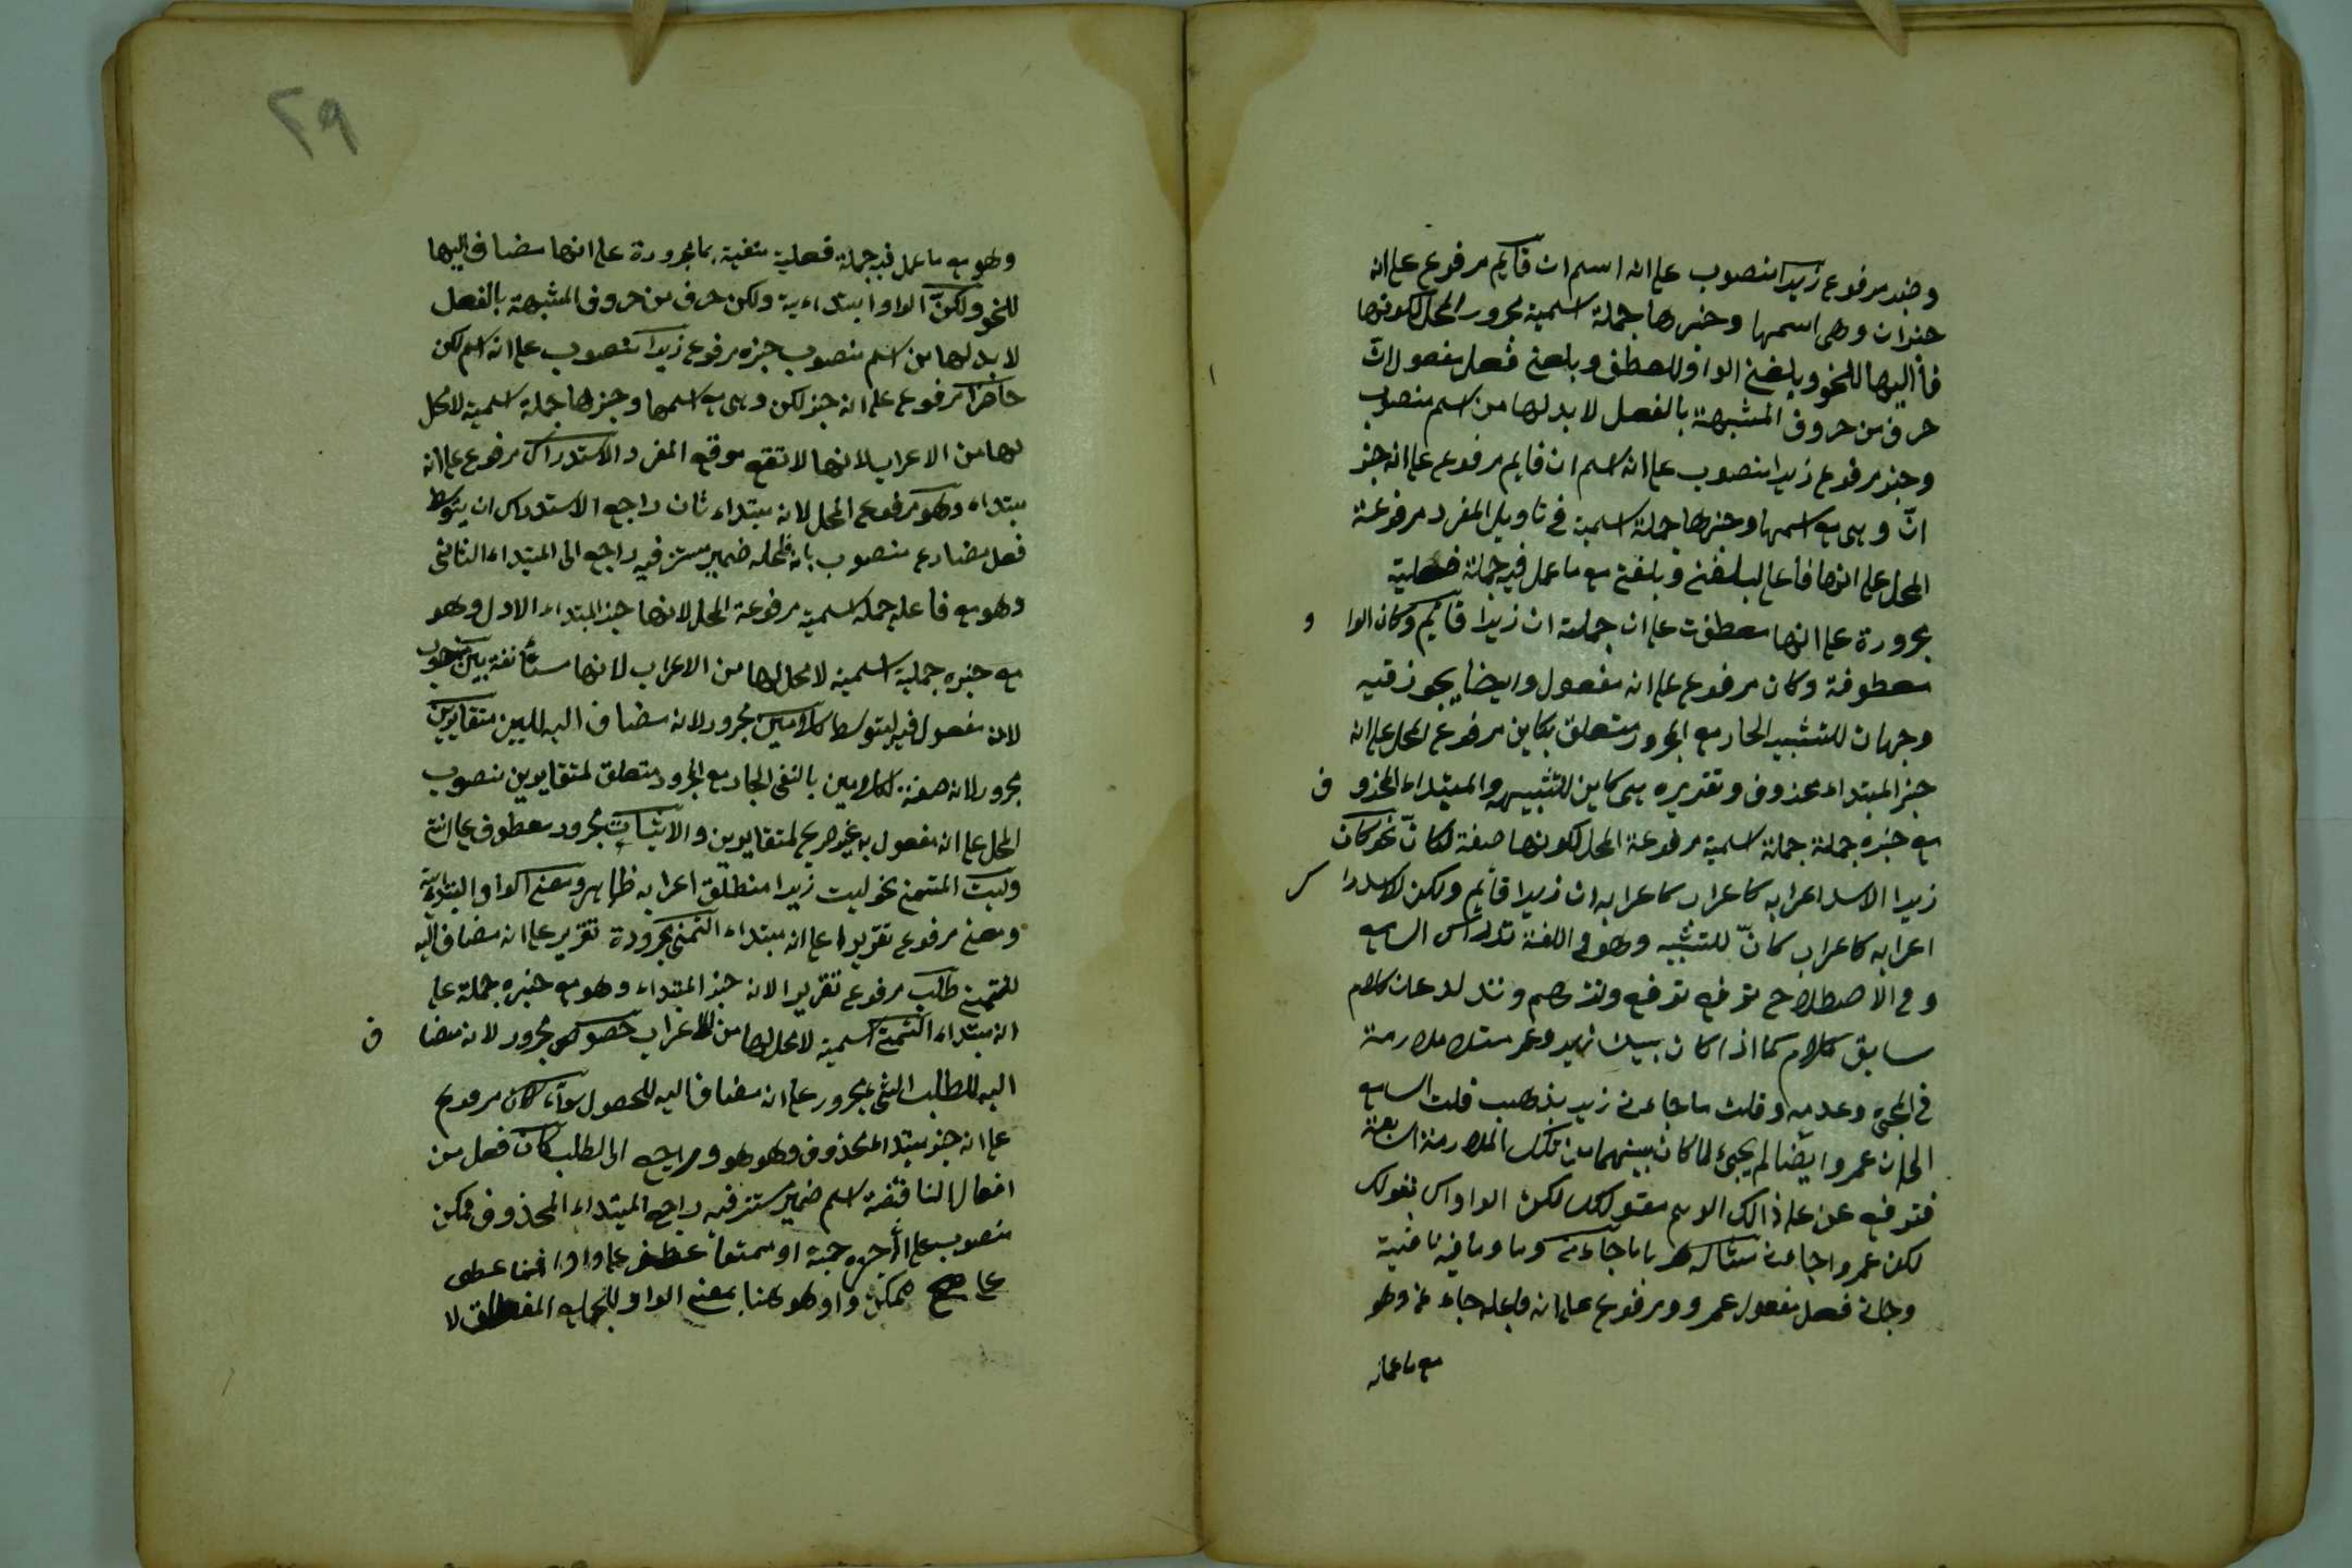 وخبر مرفوع زيدا منصوب على انه اسم ان قايم مرفوع على انه
خبر ان وهى اسمها وخبرها جملة اسمية مجرور المحل لكونها
فا اليها للنحو وبلغنى الواو للعطف وبلغنى فعل مفعول انّ
حرف من حروف المشبهة بالفعل لا بد لها من اسم منصوب
وخبر مرفوع زيدا منصوب على انه اسم ان قايم مرفوع على انه خبر
انّ وهى مع اسمها وخبرها جملة اسمية فى تاويل المفرد مرفوعة
المحل على انها فاعل لبلغنى وبلغنى مع ما عمل فيه جملة فعلية
مجرورة على انها معطفت على ان جملة ان زيدا قائيم وكان الوا و
معطوفة وكان مرفوع على انه مفعول وايضا يجوز فيه
وجهان للتشبيه الجار مع المجرور متعلق بكاين مرفوع المحل على انه
خبر المبتداء محذوف وتقديره هى كاين للتشبيه والمبتداء المحذو ف
مع خبره جملة جملة اسمية مرفوعة المحل لكونها صفة لكانّ نحو كان
زيدا الاسد اعرابه كاعراب كاعرابه ان زيدا قائيم ولكن للاستدرا ك
اعرابه كاعراب كانّ للتشبيه وهو فى اللغة تدارك السامع
وفى الاصطلاح
سابق كلام كما اذا كان بينك زيد وعمر ملازمة
فى المجئ وعدمه وقلت ما جاءنى زيد يذهب قلت السامع
الى ان عمروا ايضا لم يجئ لما كان بينهما من تلك الملازمة
فترفع عن على ذالك الوهم بقولك لكن الواو
لكن عمروا جاءنى مثاله ما جاءنى وما وما فيه نافية
وجانى فعل مفعول عمرو ومرفوع على انه فاعله جاءنى وهو
مع ما عمل
٢٩
وهو مع ما عمل فيه جملة فعلية منفية بما مجرورة على انها مضاف اليها
للنحو ولكنّ الواو ابتداءية ولكن حرف من حروف المشبهة بالفعل
لا بد لها من اسم منصوب خبره مرفوع زيدا منصوب على انه اسم لكن
حاضرا مرفوع على انه خبر لكن وهى مع اسمها وخبرها جملة اسمية لا محل
لها من الاعراب لانها لا تقع موقع المفرد الاستدراك مرفوع على انه
مبتداء وهو مرفوع المحل لانه مبتداء ثان راجع الاستدراك ان يتوسط
فعل مضارع منصوب بان فاعله ضمير مستتر فيه راجع الى المبتداء الثانى
وهو مع فاعله جمله اسمية مرفوعة المحل لانها خبر المبتداء الاول وهو
مع خبره جملية اسمية لا محل لها من الاعراب لانها مستأنفة بين منصوب
لانه مفعول فيه ليتوسط كلامين مجرور لانه مضاف اليه للبين متغايرين
مجرور لانه صفة لكلامين بالنفى الجار مع المجرور متعلق لمتغايرين منصوب
المحل على انه مفعول به غير صريح لمتغايرين والاثبات مجرور معطوف على النفى
وليت المتمنى نحو ليت زيدا منطلق اعرابه ظاهر ومعنى الواو ابتدائية
ومعنى مرفوع تقديرا على انه مبتداء التمنى مجرورة تقدير على انه مضاف اليه
للتمنى طلب مرفوع تقديرا لانه خبر المبتداء وهو مع خبره جملة على
انه مبتداء التمنى اسمية لا محل لها من الاعراب حصول مجرور لانه مضا ف
اليه للطلب الشئ مجرور على انه مضاف اليه للحصول سواء كان مرفوع
على انه خبر مبتداء المحذوف وهو هو وراجع الى الطلب كان فعل من
افعال الناقصة اسم ضمير مستتر فيه راجع المبتداء المحذوف ممكن
منصوب على انه خبره او ممتنعا عطف على واو
على ممكن واو هو هنا بمعنى الواو للجمع المطلق لا